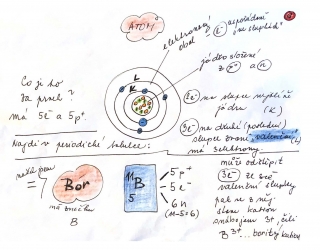 ATOM
elektronový obal
e⁻ uspořádané
ve slupkách
L
K
jádro složené
z p⁺ a n
Co je to
za prvek?
má 5e⁻ a 5p⁺
2e⁻ na slupce nejblíže
jádra (K)
3e⁻ na druhé (poslední)
slupce zvané valenční (L)
má 3 elektrony
Najdi v periodické tabulce:
Bor
má značku
B
11
B
5
5p⁺
5e⁻
6n
(11-5=6)
může odštěpit
3e⁻ ze své
valenční slupky
pak se z něj
stane kation
s nábojem 3+, čili
B³⁺ ... boritý kation